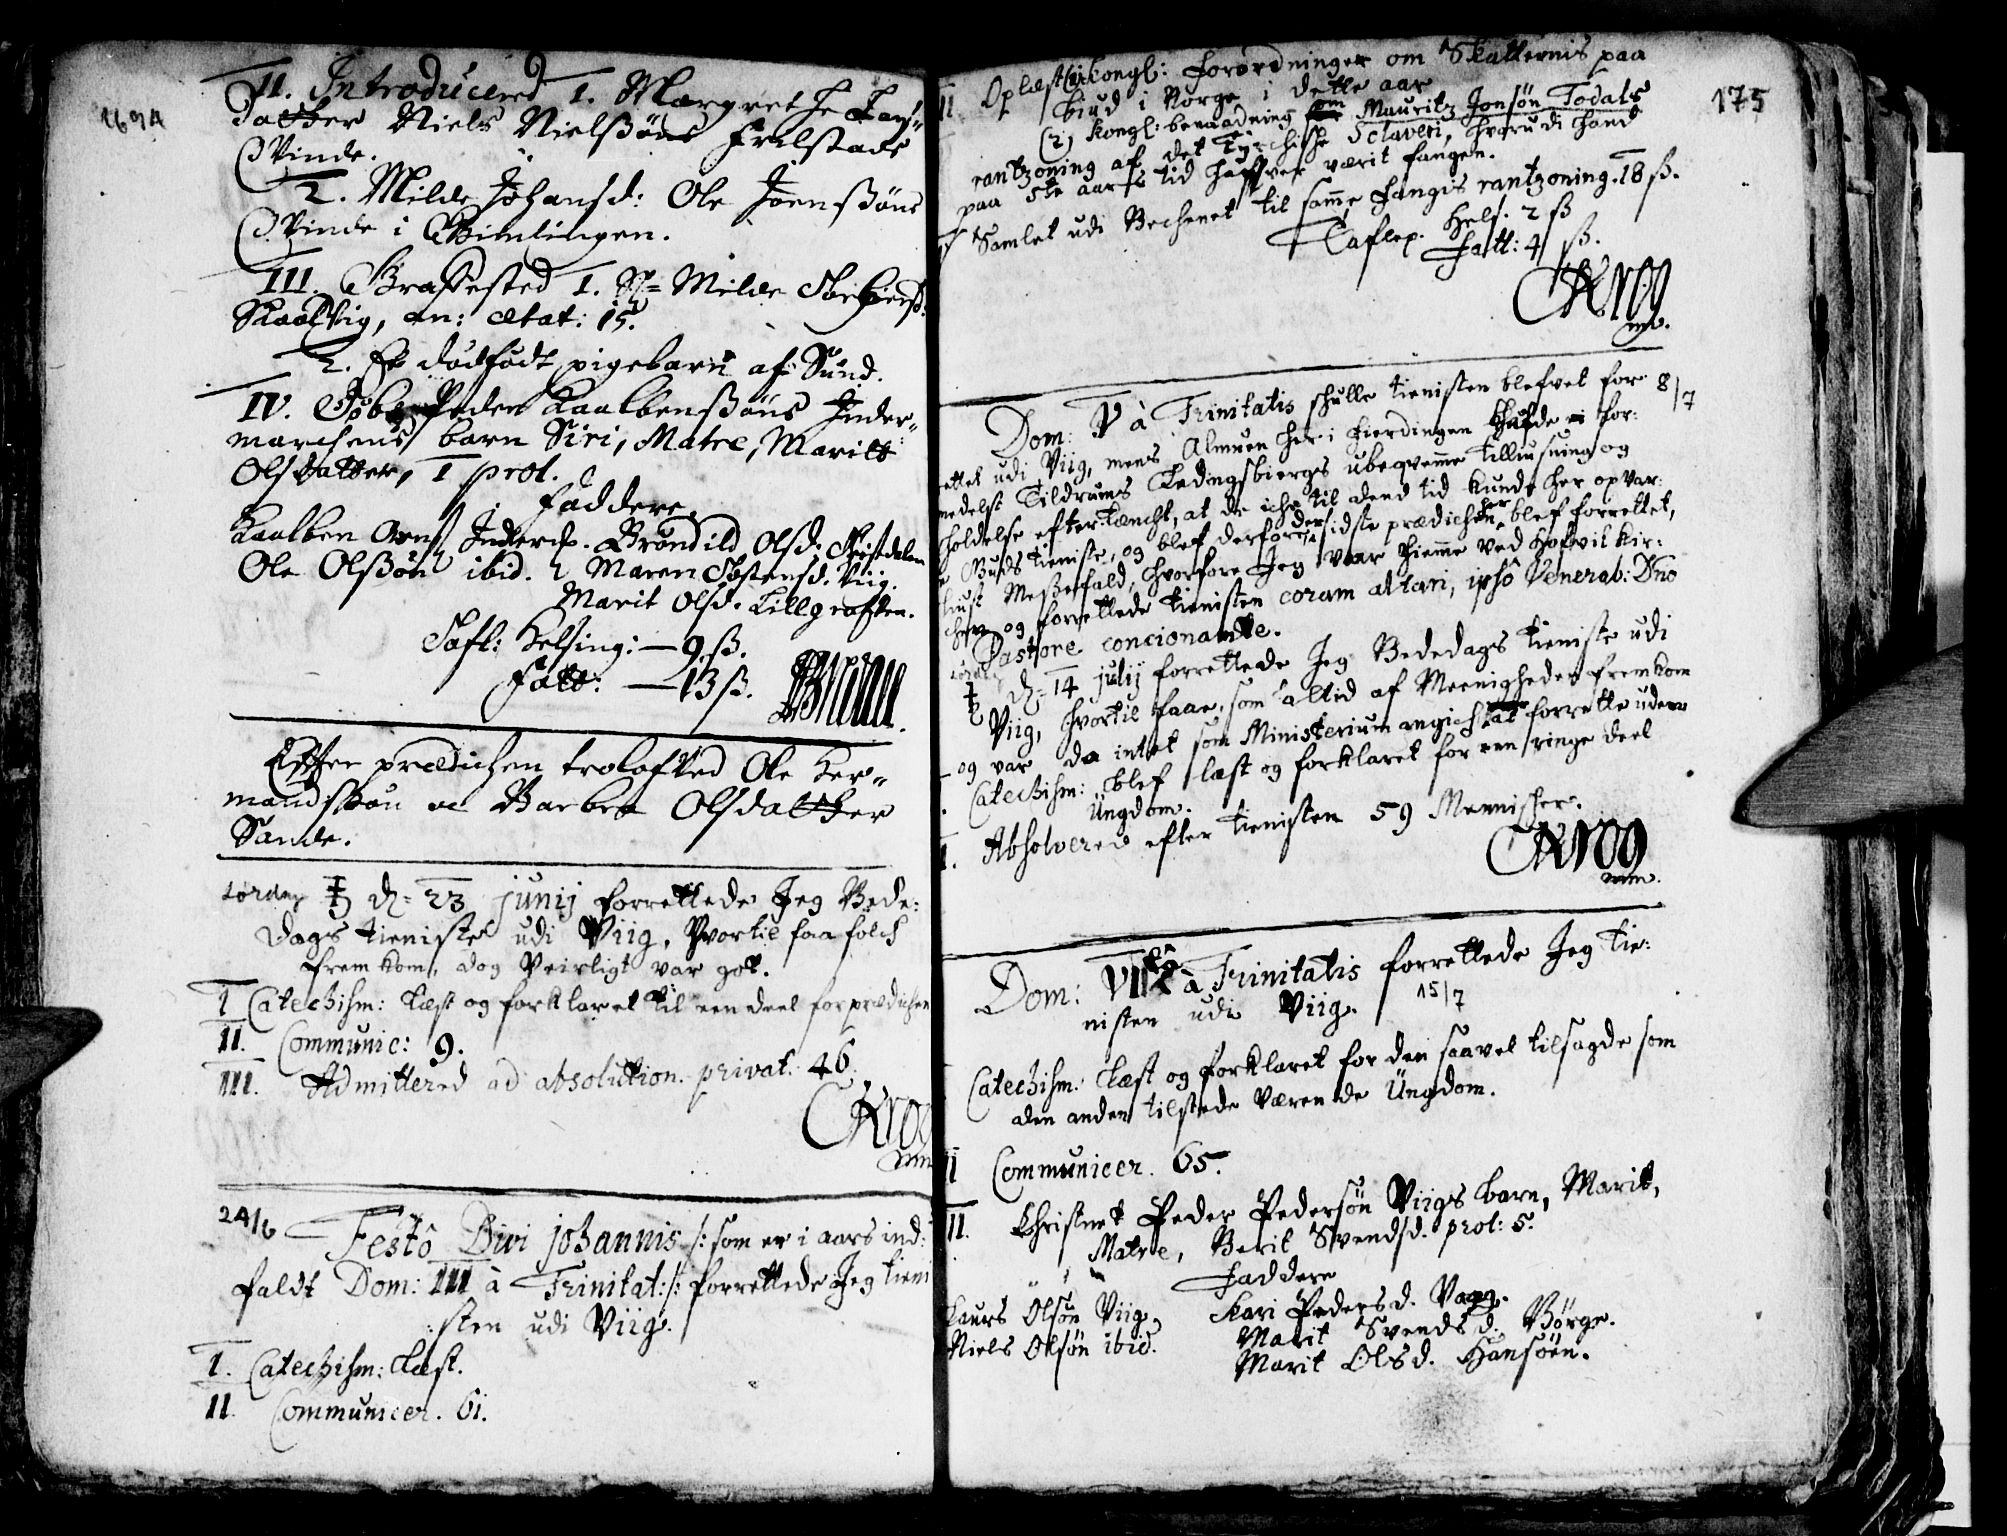 1694
II. Introducered 1. Margrethe Lars-
datther Niels Nielßøns Frilstads
Qvinde.
2. Milde Johansd: Ole Joenßøns
Qvinde i Bimlingen.
III. Graffested 1. Sl= Milde
Skaalvig, an: ætat: 15.
2. Et dødfødt pigebarn af Sund.
IV. Døbt Peder Kaalbenßøns Inder-
marchens barn Siri, Matre, Maritt
Olsdatter, 1 prol.
Faddere.
Kaalben Indermr. Brondild Olsd:
Ole Olßøn ibid. Maren Sostensd. Viig.
Marit Olsd. Lillgrafften.
Tafl: Helsing: — 9 ß.
Fatt: — 13 ß.
Effter prædichen trolofved Ole Her-
mandßøn oc Barbra Olsdatther
Sande.
Lørdag ♄ d= 23 junij forrettede Jeg Bede-
dags tieniste udi Viig, hvortil faa folch
fremkom, dog Veirligt var got.
I Catechism: Læst og forklaret til een deel for prædichen
II. Communic: 9.
III. Admittered ad absolution. privat. 46.
CKrog
mm
24/6
Festô Divi johannis /: som er i aars ind-
faldt Dom: III à Trinitat: /: forrettede Jeg tieni-
sten udi Viig.
I. Catechism: Læst.
II Communicer. 61.
175
II. Oplæst (1) kongl: forordninger om Skatternis paa
biud i Norge i dette aar
(2) Kongl: benaadning om Mauritz Jonsøn Todals
rantzoning af det Tyrchische Sclaveri, hvorudi hand
paa 5te aars tid haffver værit fangen.
Samlet udi Bechenet til samme Fangis rantzoning. 18 ß.
Taflep. Hels. 2 ß
Fatt: 4 ß.
CKrog
mm.
Dom: V à Trinitatis skulle tienisten blefvet for- 8/7
ettet udi Viig, mens Almuen her i Fierdingen hafde for-
medelst Tildrums Ledingsbiergs ubeqvemme tilliusning og
holdelse eftertæncht, at de iche til dend tid kunde her opvar-
Guds tieniste, og blef derfor der sidste prædichen her blef forrettet,
liust Meßefald, hvorfore Jeg var hiemme ved Hofvit kir-
chen og forrettede tienisten coram altari, ipsô Venerab: Dno
Pastore concionante.
Lørdag
♄ d= 14 julij forrettede Jeg Bededags tieniste udi
Viig, hvortil faae, som altid af Meenigheden fremkom
og var da intet som Ministerium angich at forrette uden
Catechism: blef læst og forklaret for een ringe deel
Ungdom.
I. Absolvered efter tienisten 59 Mennischer.
CKrog
mm.
Dom: VI à Trinitatis forrettede Jeg tie-
nisten udi Viig. 15/7
Catechism: Læst og forklaret for den saavel tilsagde som
den anden tilstede værende Ungdom.
II Communicer. 65.
II. Christnet Peder Pedersøn Viigs barn, Marit,
Matre, Berit Svendsd. prol: 5.
Faddere
Laurs Olsøn Viig, Kari Pedersd. Vagg.
Niels Olsøn ibid. Marit Svendsd. Børge.
Marit Olsd. Hansøen.